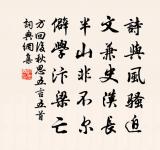 詩與風騷迫
文兼史漢長
半山非不尔
僻學汴梁亡
方回後秋思五言五首
詞典網集